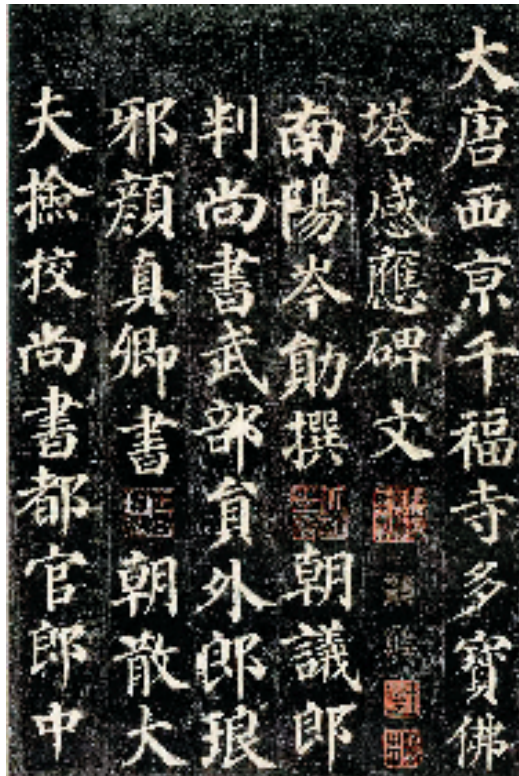 大唐西京千福寺多寶佛
塔感應碑文
南陽岑勛撰 朝議郎
判尚書武部員外郎琅
邪顏真卿書 朝散大
夫撿校尚書都官郎中